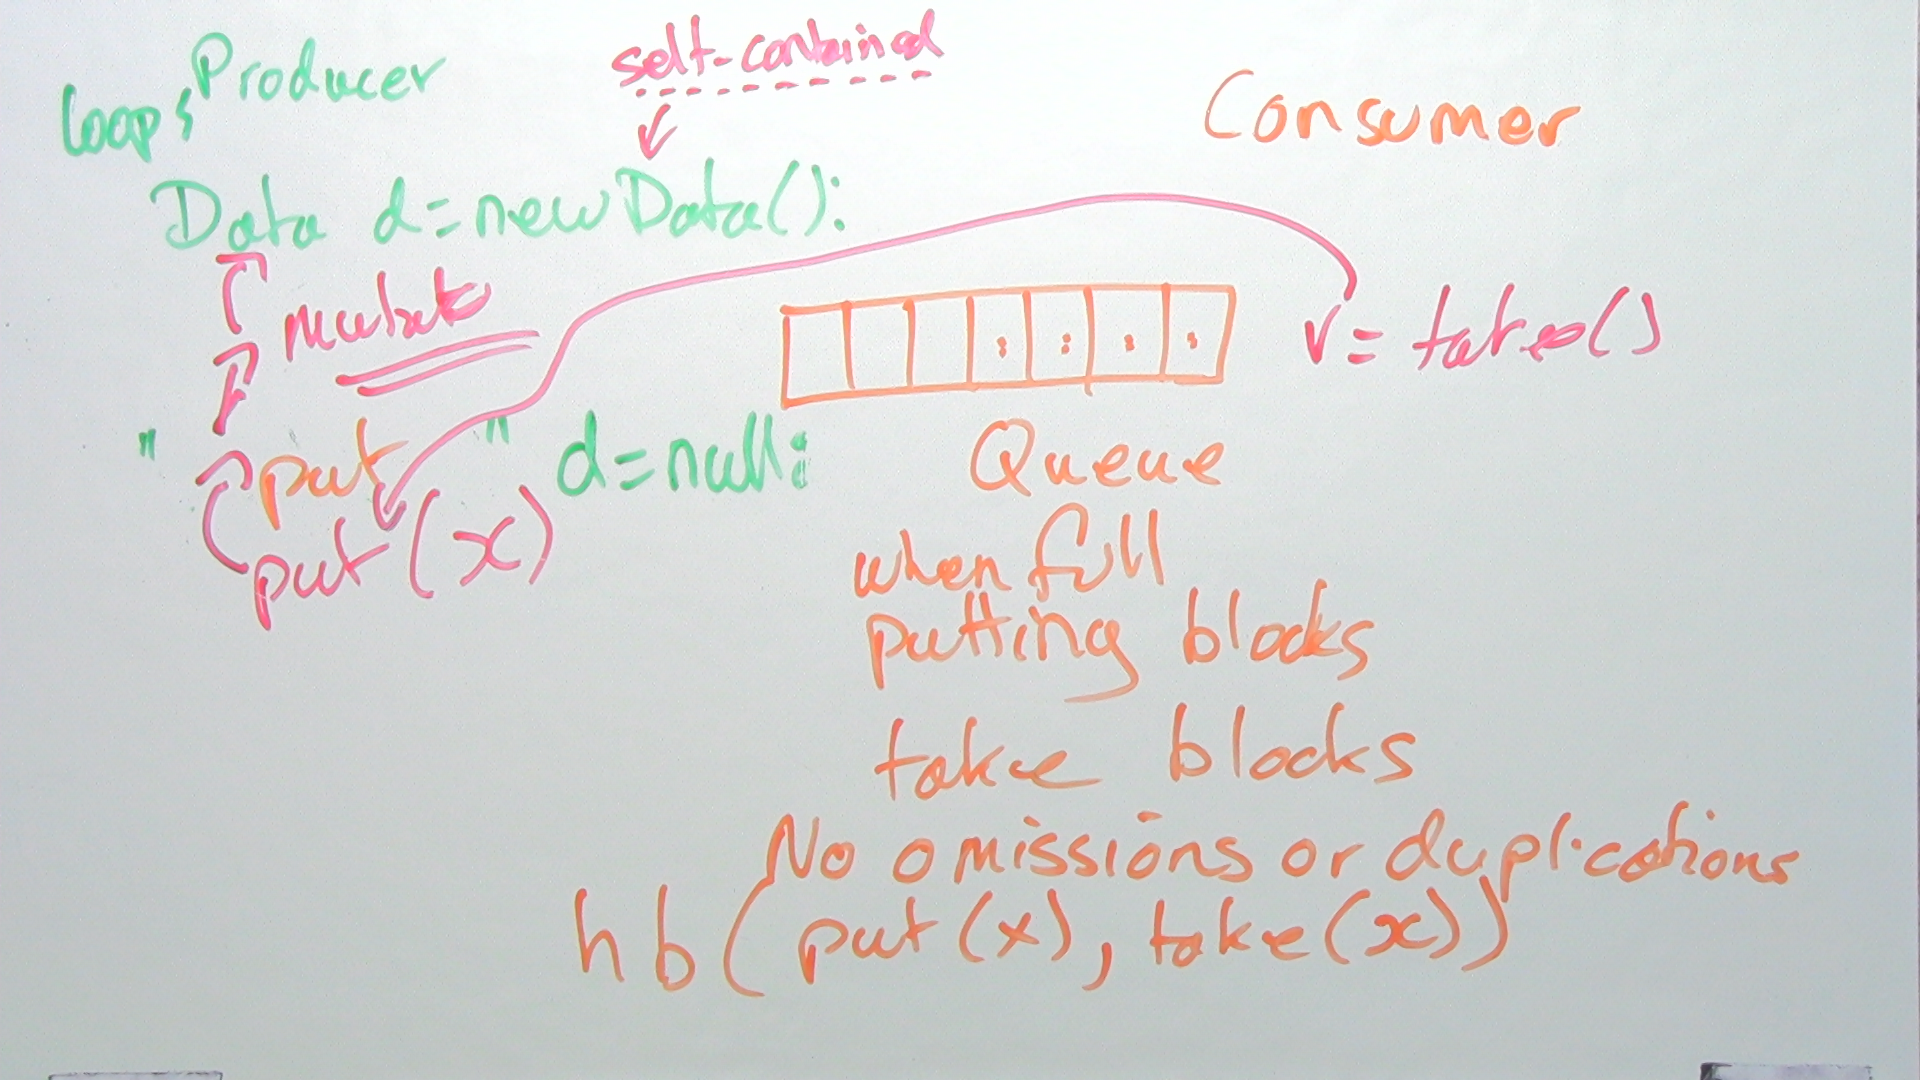 loops Producer
self-contained
Consumer
Data d=new Data();
mutate
v= take()
" put " d=null;
Queue
put (x)
when full
putting blocks
take blocks
No omissions or duplications
hb (put (x), take (x))